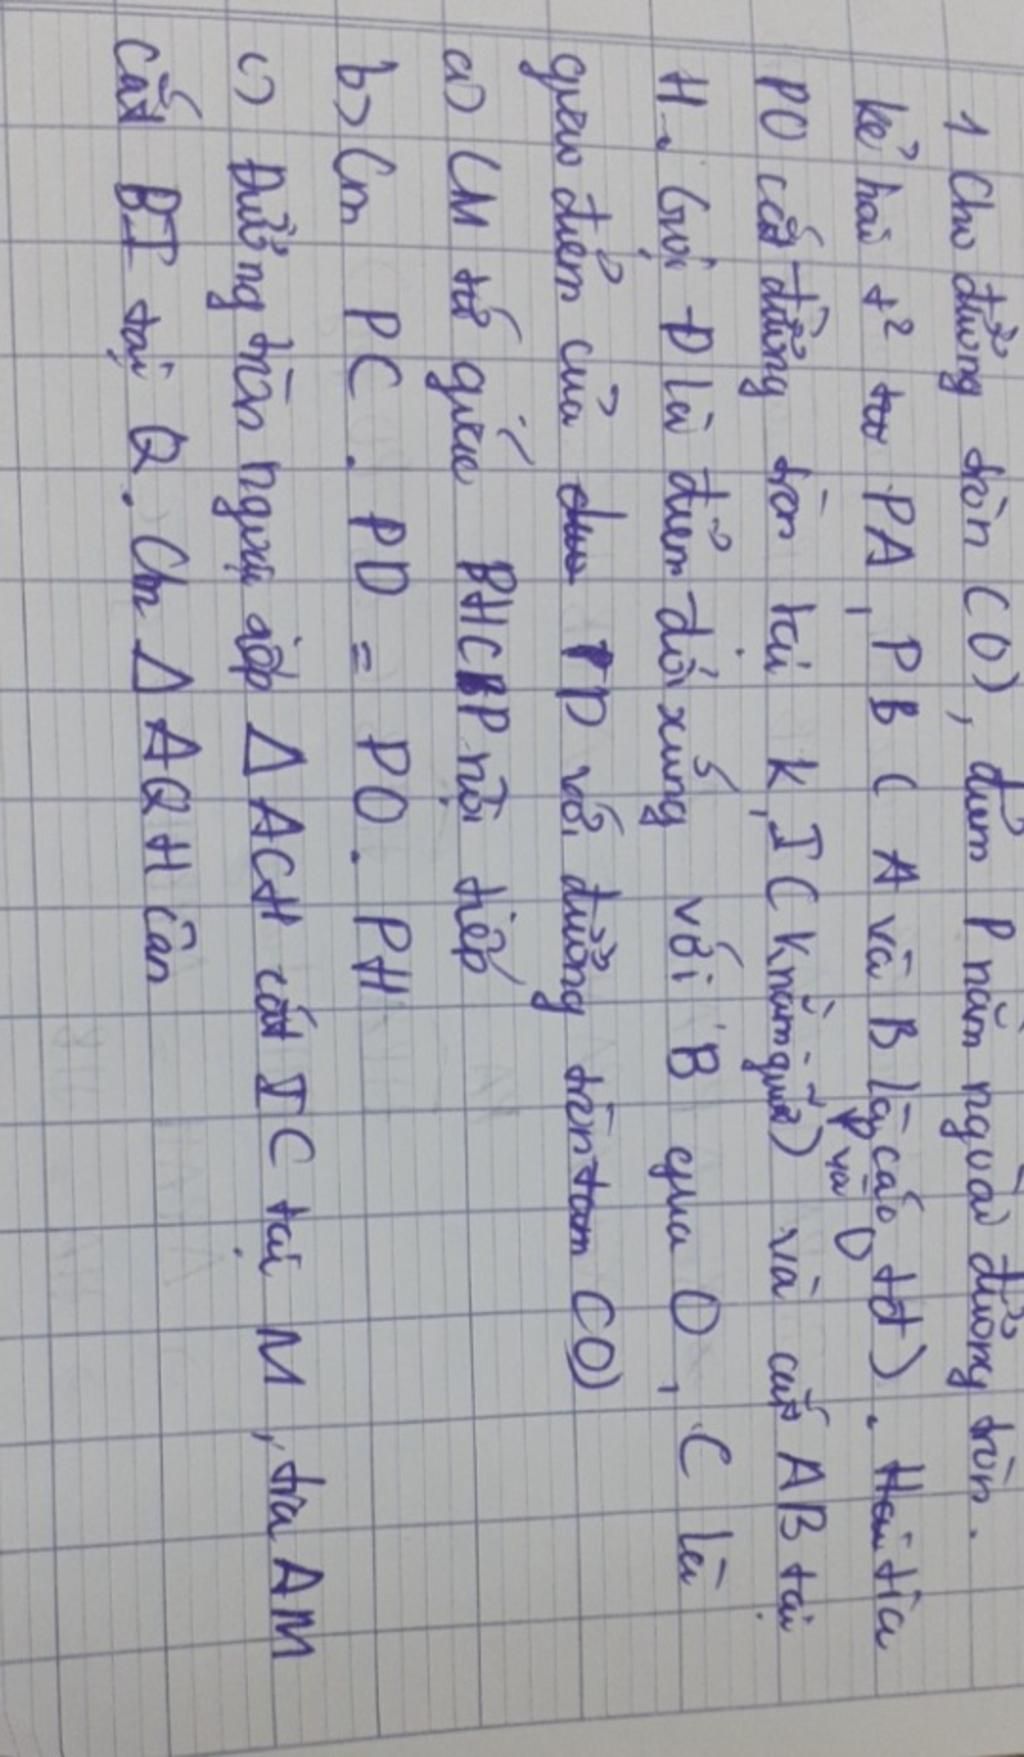 1 Cho đường tròn (O), điểm P nằm ngoài đường tròn.
kẻ hai t² PA, PB ( A và B là các tđ). tia
PO cắt đường tròn tại K, I ( K nằm giữa P và O) và cắt AB tại
H. Gọi D là điểm đối xứng với B qua O, C là
giao điểm của PD với đường tròn tâm (O)
a) CM tứ giác BHCP nội tiếp
b) Cm PC . PD = PO . PH
c) Đường tròn ngoại tiếp Δ ACH cắt IC tại M, tia AM
cắt BI tại Q. Cm Δ AQH cân